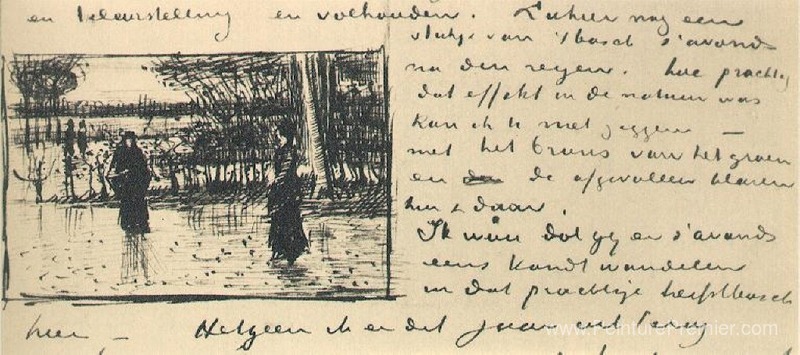 en teleurstelling en volhouden. Ziehier nog een
stukje van 't bosch 's avonds
na den regen. hoe prachtig
dat effekt in de natuur was
kan ik U niet zeggen –
met het brons van het groen
en de afgevallen blaren
hier & daar.
Ik wou dat gij er 's avonds
eens kondt wandelen
in dat prachtige herfstbosch
hier – Hetgeen ik er dit jaar uit kreeg
www.PeinturePremier.com